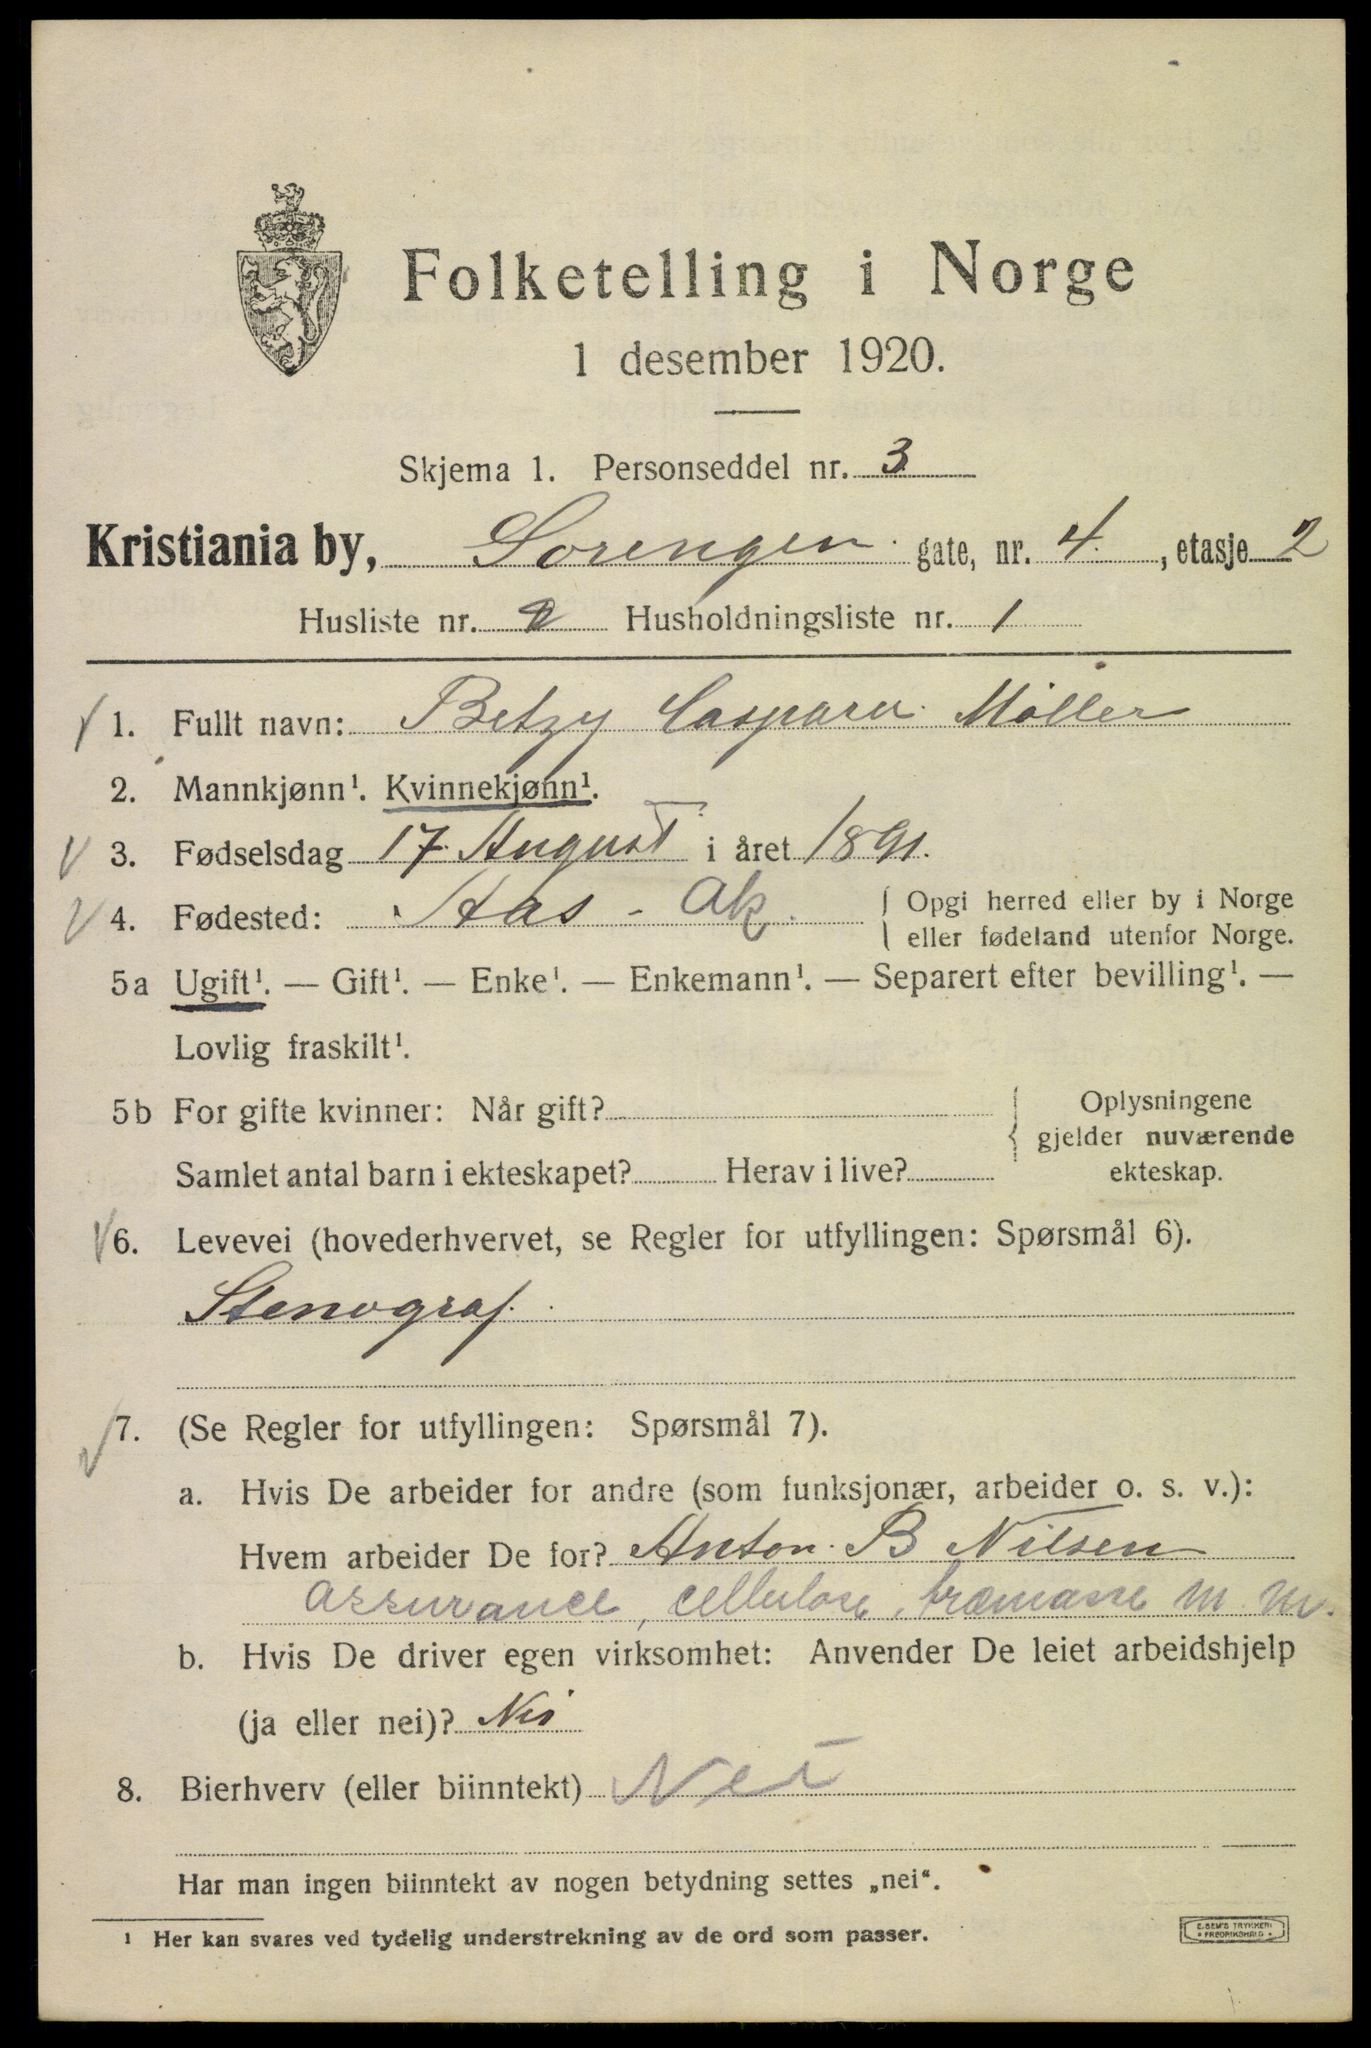 Folketelling i Norge
1 desember 1920.
Skjema 1. Personseddel nr. 3
Kristiania by, Sorengen gate, nr. 4. , etasje 2
Husliste nr. 2 Husholdningsliste nr. 1
1. Fullt navn: Betzy Caspara Möller
2. Mannkjønn¹. Kvinnekjønn¹.
3. Fødselsdag 17. August i året 1891.
4. Fødested: Aas - Ak. { Opgi herred eller by i Norge
eller fødeland utenfor Norge.
5a Ugift¹. — Gift¹. — Enke¹. — Enkemann¹. — Separert efter bevilling¹. —
Lovlig fraskilt¹.
5b For gifte kvinner: Når gift?
Samlet antal barn i ekteskapet? Herav i live?
Oplysningene
gjelder nuværende
ekteskap.
6. Levevei (hovederhvervet, se Regler for utfyllingen: Spørsmål 6).
Stenograf.
7. (Se Regler for utfyllingen: Spørsmål 7).
a. Hvis De arbeider for andre (som funksjonær, arbeider o. s. v.):
Hvem arbeider De for? Anton B Nilsen
assurance, cellulose, træmasse m. m.
b. Hvis De driver egen virksomhet: Anvender De leiet arbeidshjelp
(ja eller nei)? Nei
8. Bierhverv (eller biinntekt) Nei
Har man ingen biinntekt av nogen betydning settes „nei“.
¹ Her kan svares ved tydelig understrekning av de ord som passer.
E. SEM'S TRYKKERI
* FREDRIKSHALD *